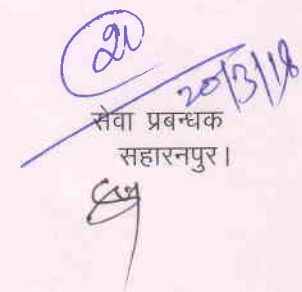 20/3/18
सेवा प्रबन्धक
सहारनपुर।